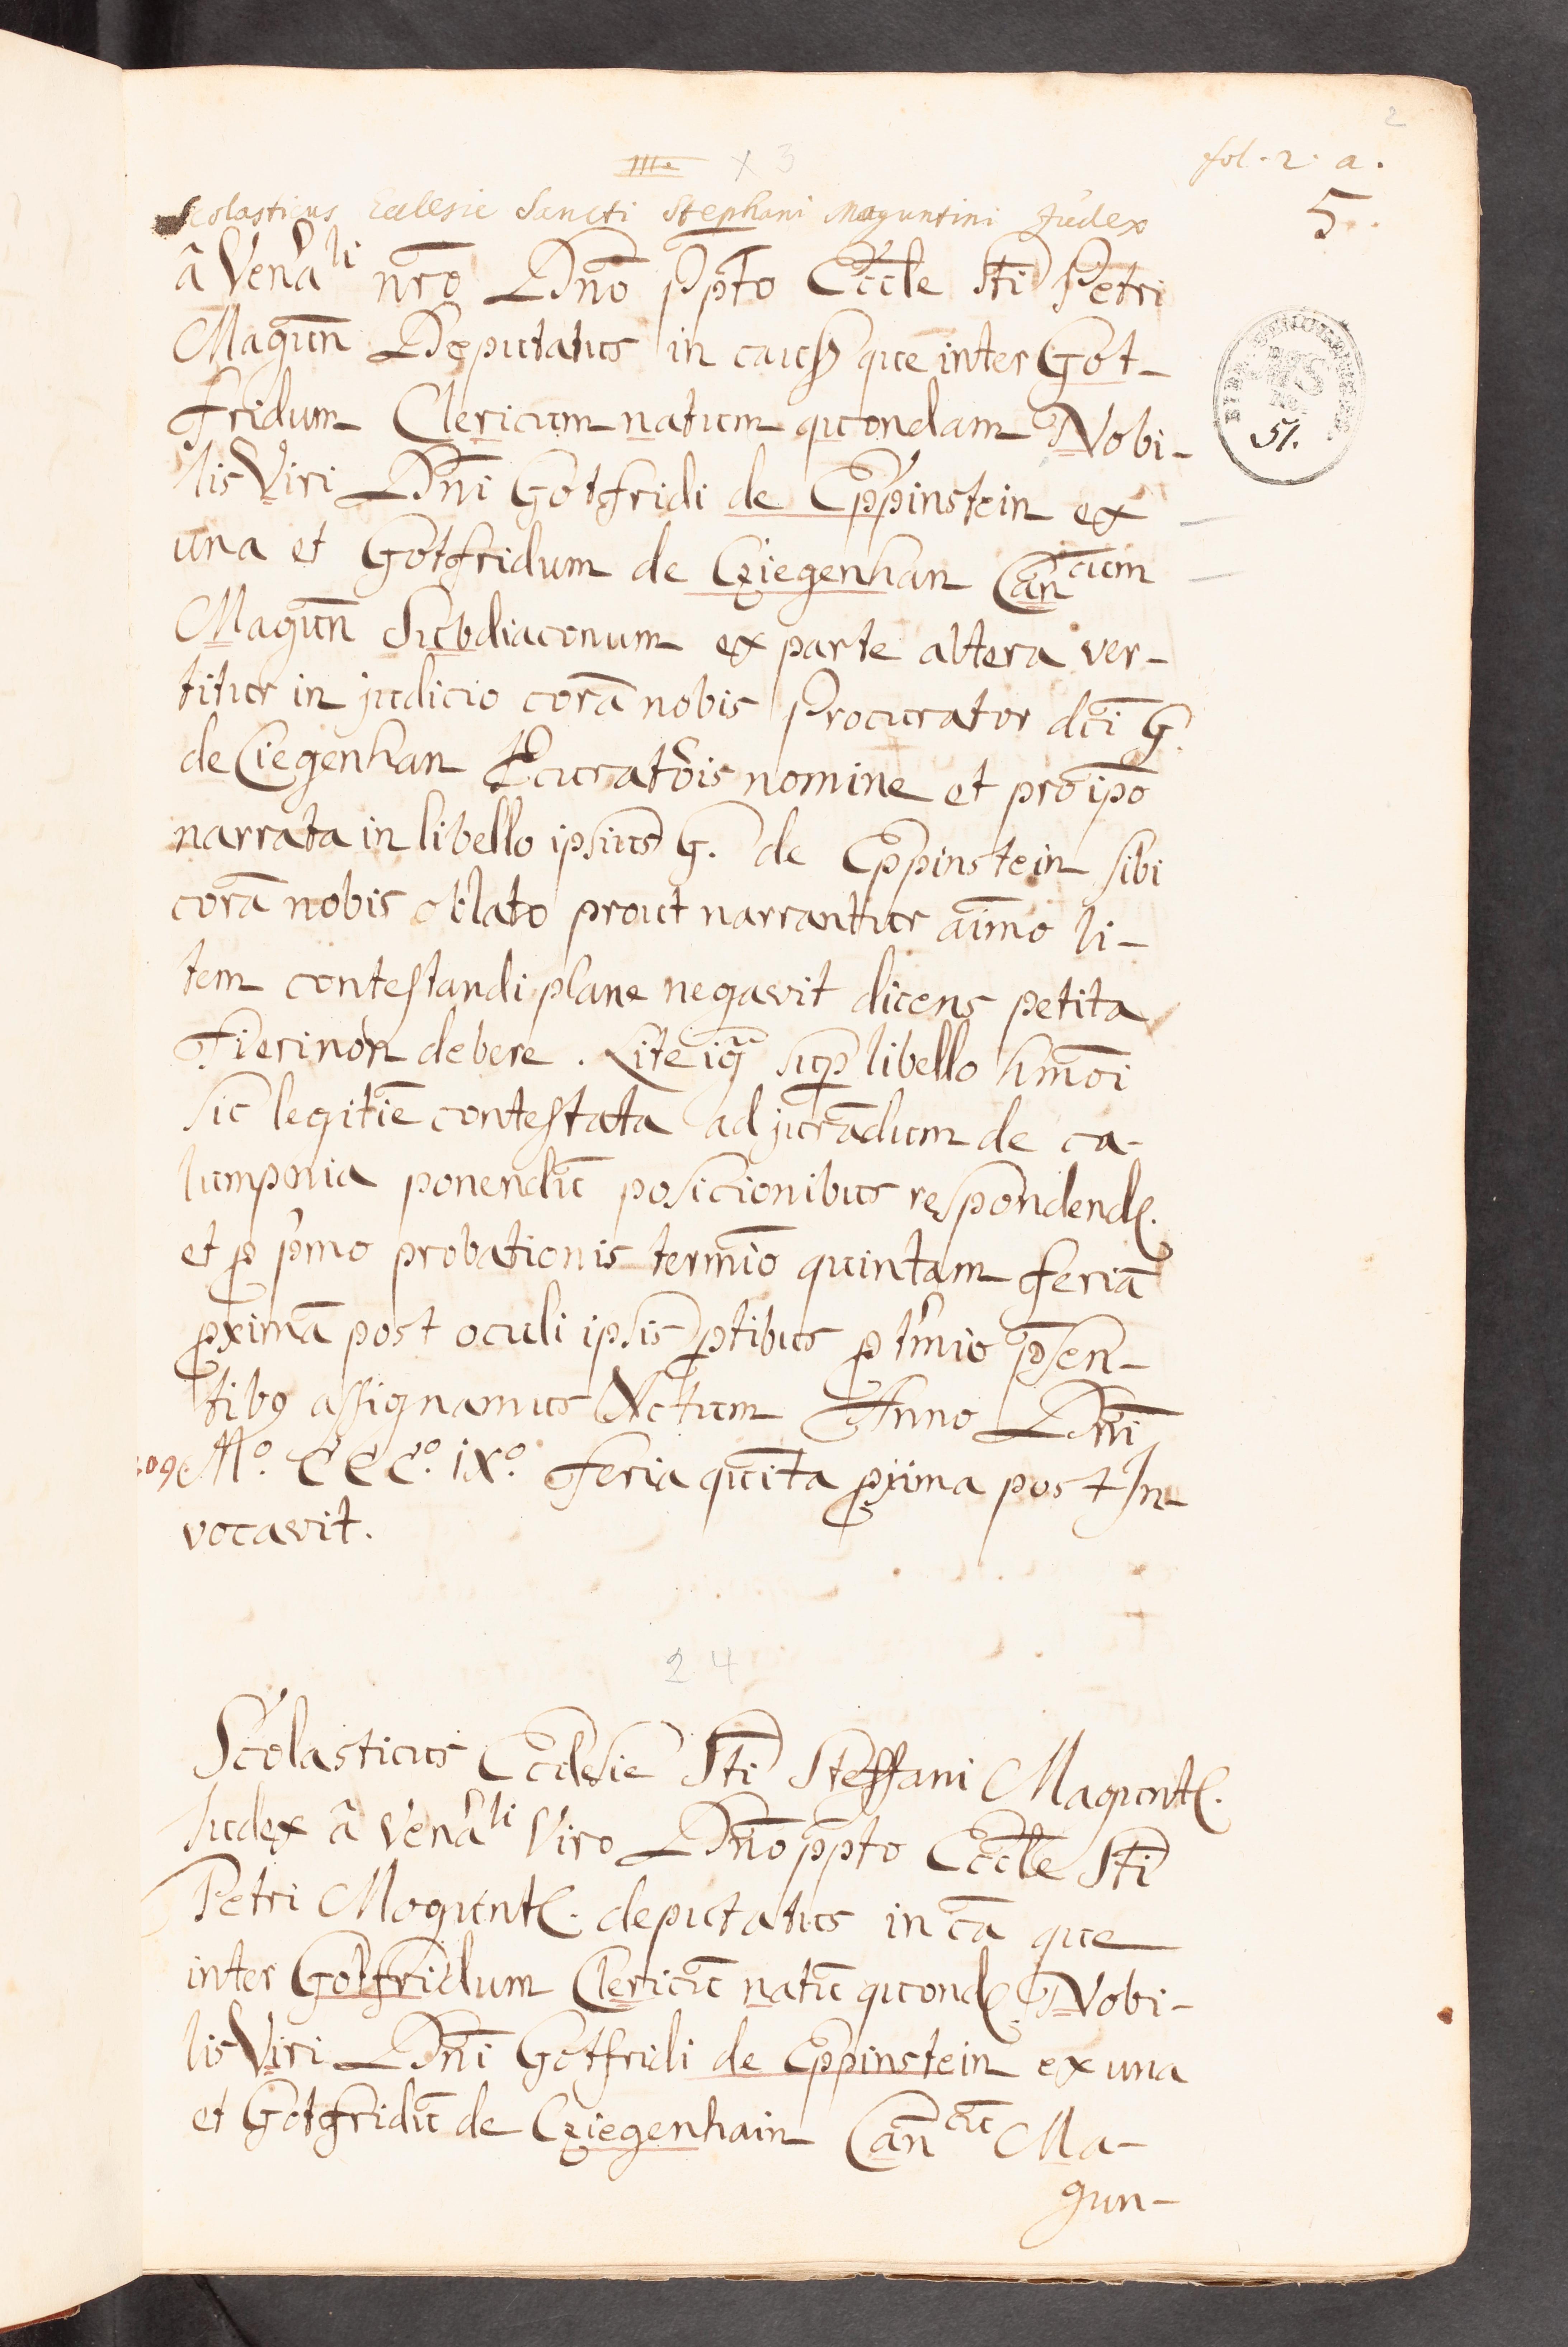 2
fol. 2. a.
IIIe x 3
5.
Scolasticus Ecclesie Sancti Stephani Maguntini Judex
â Venãli nrõ Dnõ Ppto Eccle Sti Petri
Magun̄ Deputatus in causa que inter Got-
fridum Clericum natum quondam Nobi-
lis Viri Dni Gotfridi de Eppinstein ex
una et Gotfridum de Cziegenhan Cancum
Magun̄ Subdiaconum ex parte altera ver-
titur in judicio corã nobis Procurator dci G.
de Ciegenhan Pcuratõis nomine et pro ipõ
narrata in libello ipsius G. de Eppinstein sibi
corã nobis oblato prout narrantur aĩmo li-
tem contestandi plane negavit dicens petita
fieri non debere. Lite igr̃ sup libello hmõi
sic legitĩe contestata ad jurãdum de ca-
lumpnia ponendũ posicionibus respondend.
et p pĩmo probationis termĩo quintam feriã
pximã post oculi ipsis ptibus p tĩmio psen-
tib9 assignamus Actum Anno Dni
Mº. CCCº. IXº. feria quĩta pxima post In-
vocavit.
24
Scolasticus Ecclesie Sti Steffani Magunt.
Judex â venãli Viro Dnõ ppto Eccle Sti
Petri Mogunt. deputatus in cã que
inter Gotfridum Clericũ natũ quond. Nobi-
lis Viri Dni Gotfridi de Eppinstein ex una
et Gotfridũ de Cziegenhain Cancũ Ma-
gun-